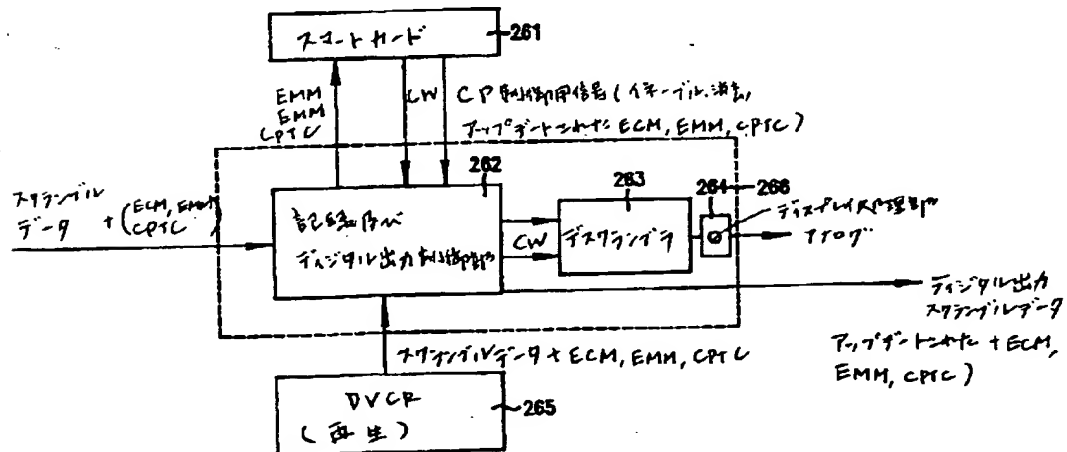 スマートカード
261
EMM
EMM
CPTC
CW
CP制御用信号(イネーブル、消去,
アップデートされたECM, EMM, CPTC)
262
263
264
266
スクランブル
データ + (ECM, EMM
CPTC)
記録及び
ディジタル出力制御部
CW
デスクランブラ
ディスプレイ処理部
アナログ
ディジタル出力
スクランブルデータ
アップデートされた + ECM,
EMM, CPTC)
スクランブルデータ + ECM, EMM, CPTC
DVCR
(再生)
265